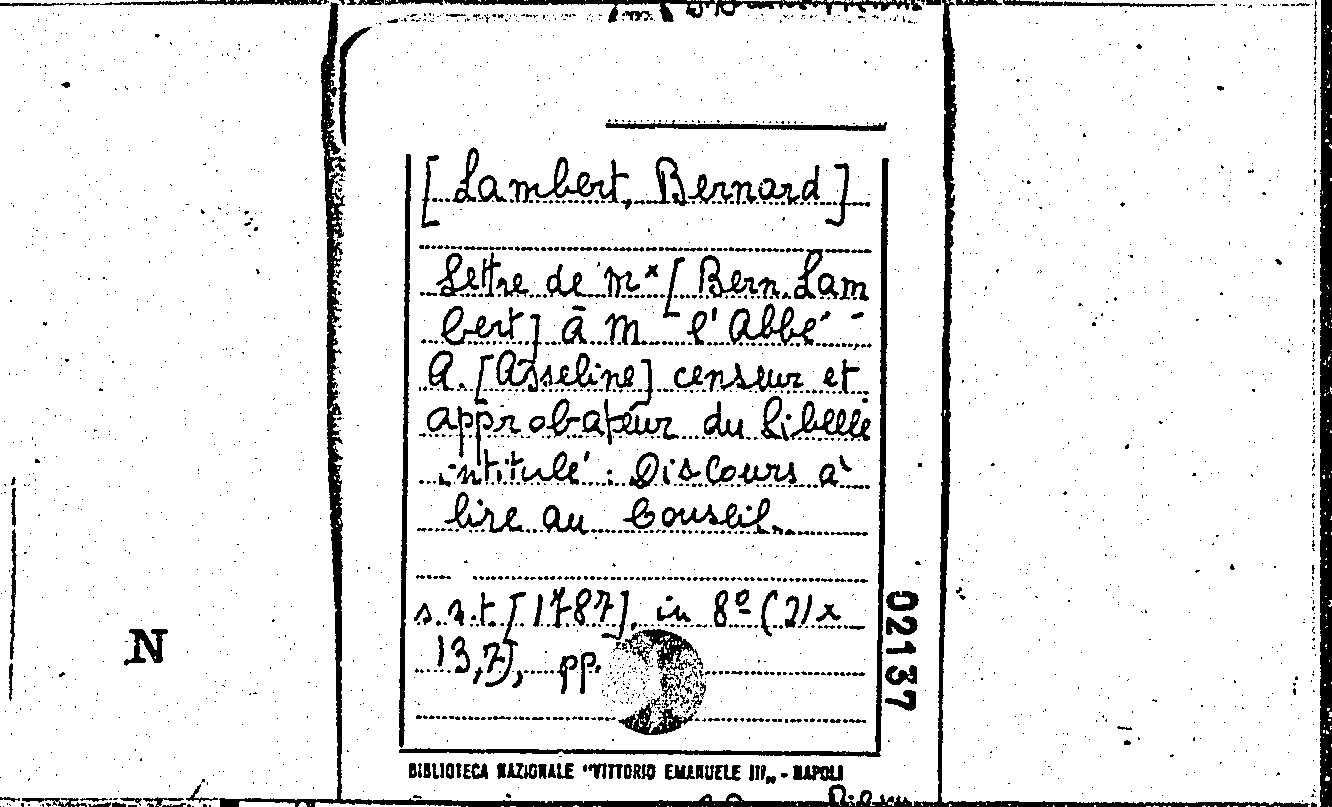 [Lambert, Bernard]
Lettre de m* [Bern. Lam
bert] à M l'Abbé
A. [Asseline] censeur et
approbateur du libelle
intitulé: Discours à
lire au Conseil.
s.n.t. [1787], in 8º (21 x
13,7), pp.
02137
N
BIBLIOTECA NAZIONALE "VITTORIO EMANUELE III„ - NAPOLI